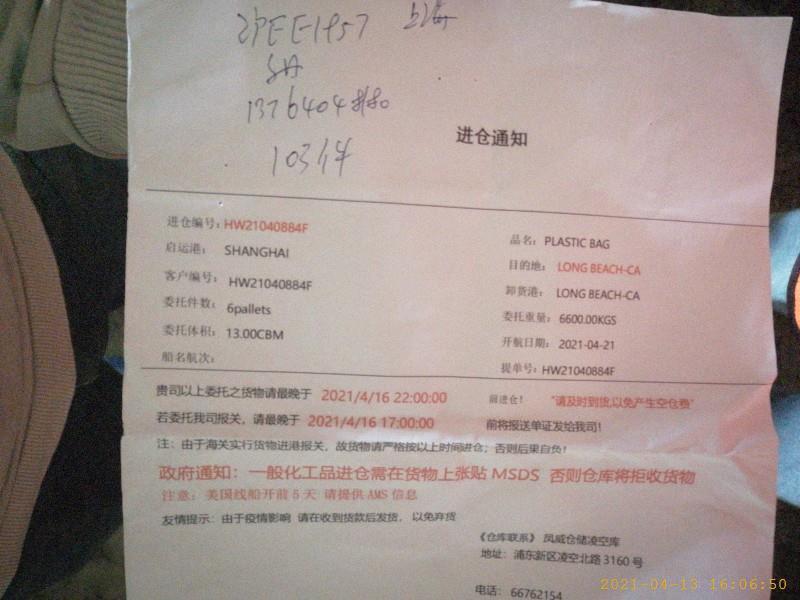 上海
103件
进仓通知
进仓编号：HW21040884F
品名：PLASTIC BAG
启运港：SHANGHAI
目的地：LONG BEACH-CA
客户编号：HW21040884F
卸货港：LONG BEACH-CA
委托件数：6pallets
委托重量：6600.00KGS
委托体积：13.00CBM
开航日期：2021-04-21
船名航次：
提单号：HW21040884F
贵司以上委托之货物请最晚于 2021/4/16 22:00:00 前进仓！ "请及时到货,以免产生空仓费"
若委托我司报关，请最晚于 2021/4/16 17:00:00 前将报送单证发给我司！
注：由于海关实行货物进港报关，故货物请严格按以上时间进仓；否则后果自负！
政府通知：一般化工品进仓需在货物上张贴 MSDS 否则仓库将拒收货物
注意：美国线船开前 5 天 请提供 AMS 信息
友情提示：由于疫情影响 请在收到货款后发货，以免弃货
《仓库联系》 凤威仓储凌空库
地址：浦东新区凌空北路 3160 号
电话：66762154
2021-04-13 16:06:50